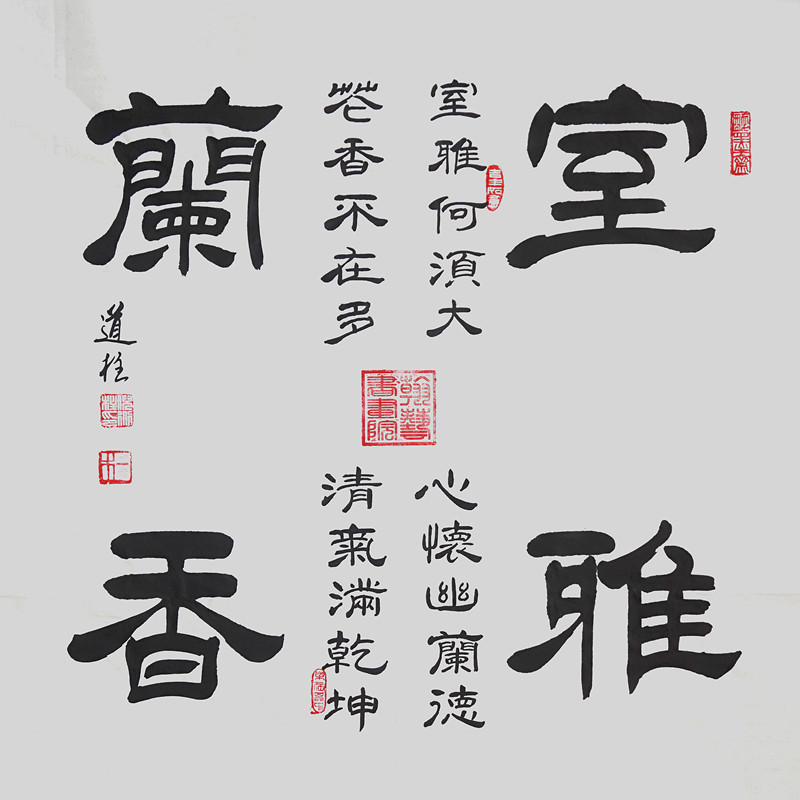 室雅
蘭香
室雅何須大
花香不在多
心懷幽蘭德
清氣滿乾坤
道柱
翰藝書畫院